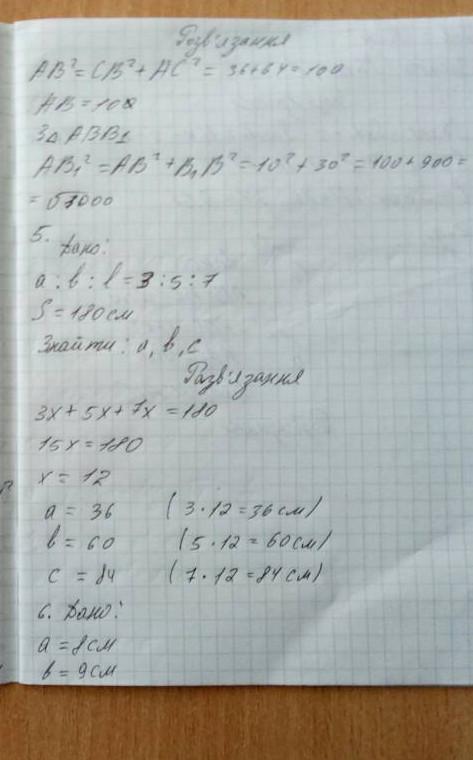 Розв'язання
AB² = CB² + AC² = 36+64 = 100
AB = 100
З△ ABB₁
AB₁² = AB² + B₁B² = 10² + 30² = 100 + 900 =
= √1000
5.
Дано:
a : b : l = 3 : 5 : 7
S = 180 см
Знайти: a, b, c
Розв'язання
3x + 5x + 7x = 180
15x = 180
x = 12
a = 36 (3 · 12 = 36 см)
b = 60 (5 · 12 = 60 см)
c = 84 (7 · 12 = 84 см)
6. Дано:
a = 8 см
b = 9 см